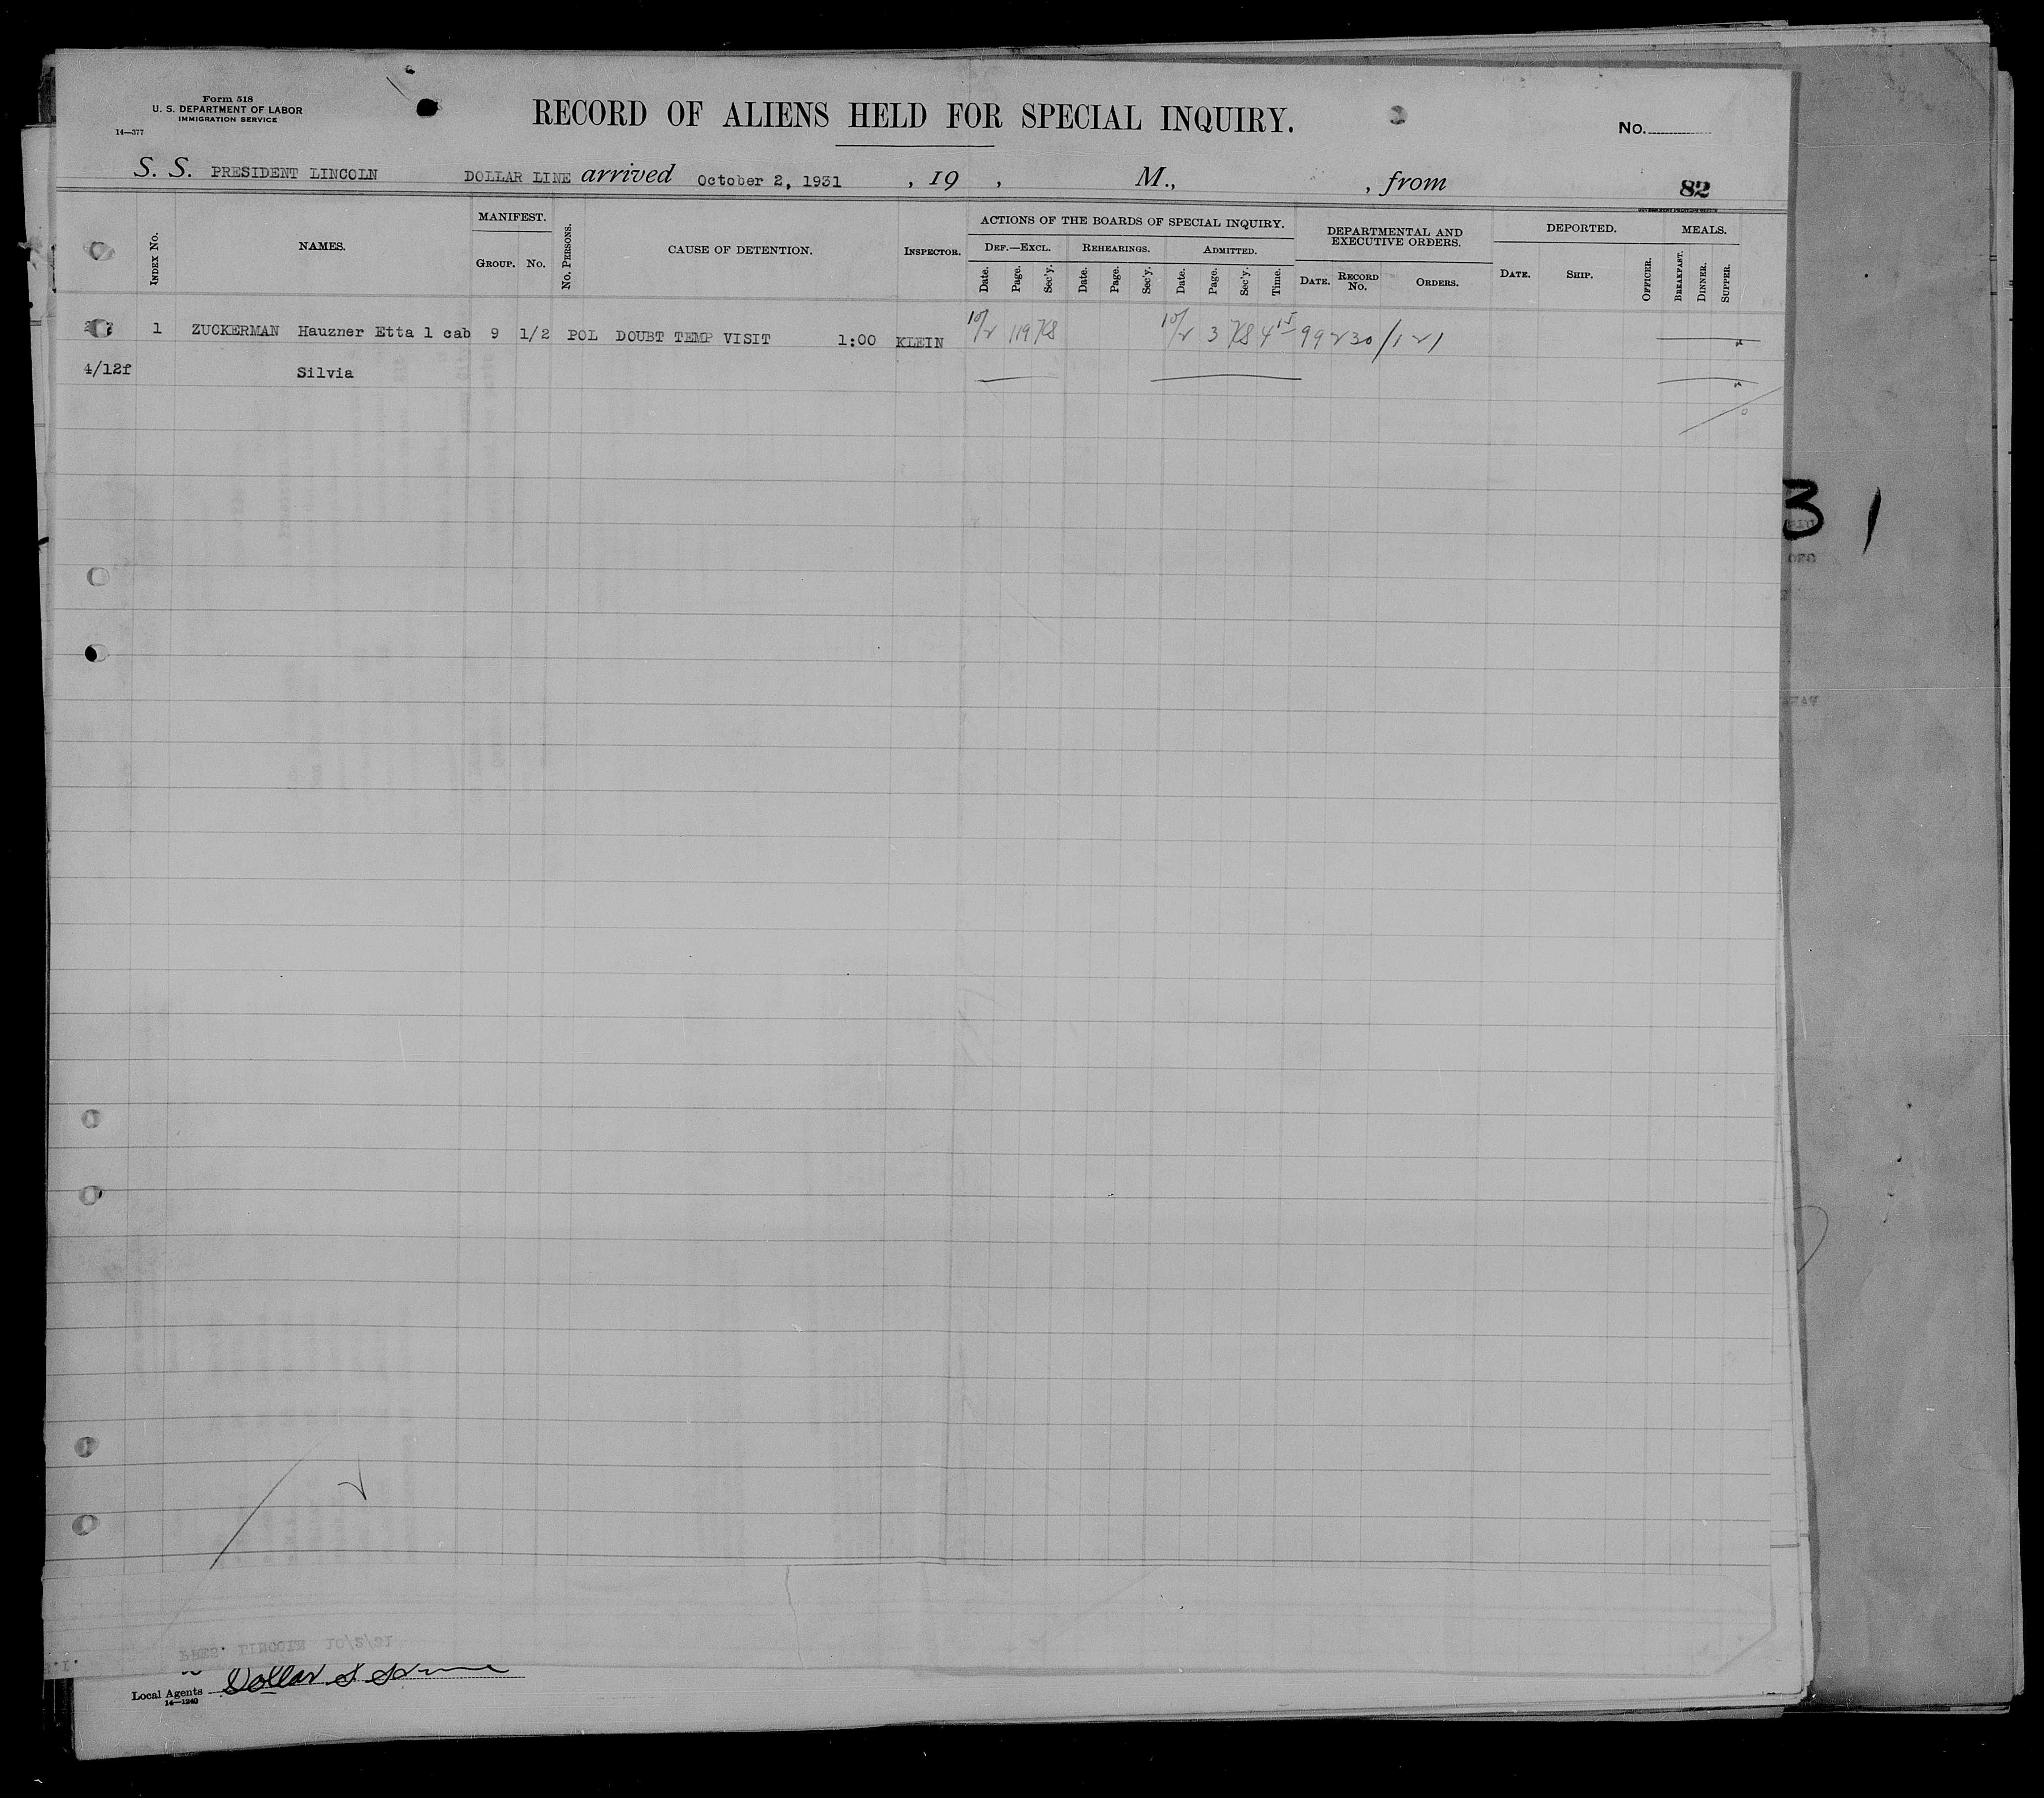 Form 518
U. S. DEPARTMENT OF LABOR
IMMIGRATION SERVICE
14—377
RECORD OF ALIENS HELD FOR SPECIAL INQUIRY.
No.
S. S. PRESIDENT LINCOLN DOLLAR LINE arrived October 2, 1931 , 19 , M., , from
82
INDEX No.
NAMES.
MANIFEST.
GROUP. No.
No. PERSONS.
CAUSE OF DETENTION.
INSPECTOR.
ACTIONS OF THE BOARDS OF SPECIAL INQUIRY.
DEF.—EXCL. REHEARINGS. ADMITTED.
Date. Page. Sec'y. Date. Page. Sec'y. Date. Page. Sec'y. Time.
DEPARTMENTAL AND
EXECUTIVE ORDERS.
DATE. RECORD No. ORDERS.
DEPORTED.
DATE. SHIP. OFFICER.
MEALS.
BREAKFAST. DINNER. SUPPER.
1 ZUCKERMAN Hauzner Etta 1 cab 9 1/2 POL DOUBT TEMP VISIT 1:00 KLEIN 10/2 119 KS 10/2 3 KS 4 15 99230/121
4/12f Silvia
31
Local Agents Dollar S S Line
14—1240